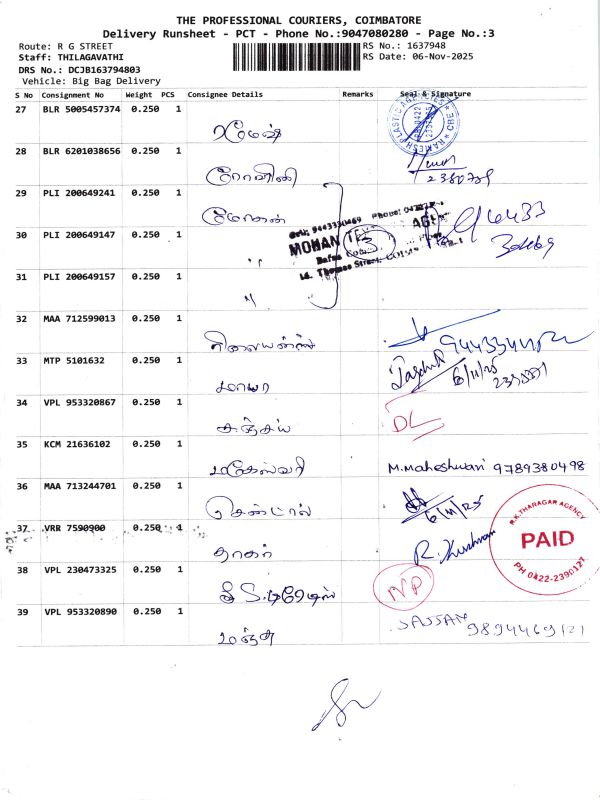 THE PROFESSIONAL COURIERS, COIMBATORE
Delivery Runsheet - PCT - Phone No.:9047080280 - Page No.:3
Route: R G STREET
RS No.: 1637948
Staff: THILAGAVATHI
RS Date: 06-Nov-2025
DRS No.: DCJB163794803
Vehicle: Big Bag Delivery
S No Consignment No Weight PCS Consignee Details Remarks Seal & Signature
27 BLR 5005457374 0.250 1
ரமேஷ்
28 BLR 6201038656 0.250 1
ரோஹிணி
29 PLI 200649241 0.250 1
மோகன்
30 PLI 200649147 0.250 1
"
31 PLI 200649157 0.250 1
"
32 MAA 712599013 0.250 1
ரிலையன்ஸ்
33 MTP 5101632 0.250 1
மாயா
6/11/25
34 VPL 953320867 0.250 1
சஞ்சய்
DL
35 KCM 21636102 0.250 1
மகேஸ்வரி M.Maheshwari 9789380498
36 MAA 713244701 0.250 1
சென்ட்ரல்
6/11/25
37 VRR 7590900 0.250 1
தாகர்
R.K.THARAGAR AGENCY
PAID
PH 0422-2390127
38 VPL 230473325 0.250 1
ஸ்ரீ S.டிரேடிஸ்
NP
39 VPL 953320890 0.250 1
மஞ்சு
SAJJAN
9894469121